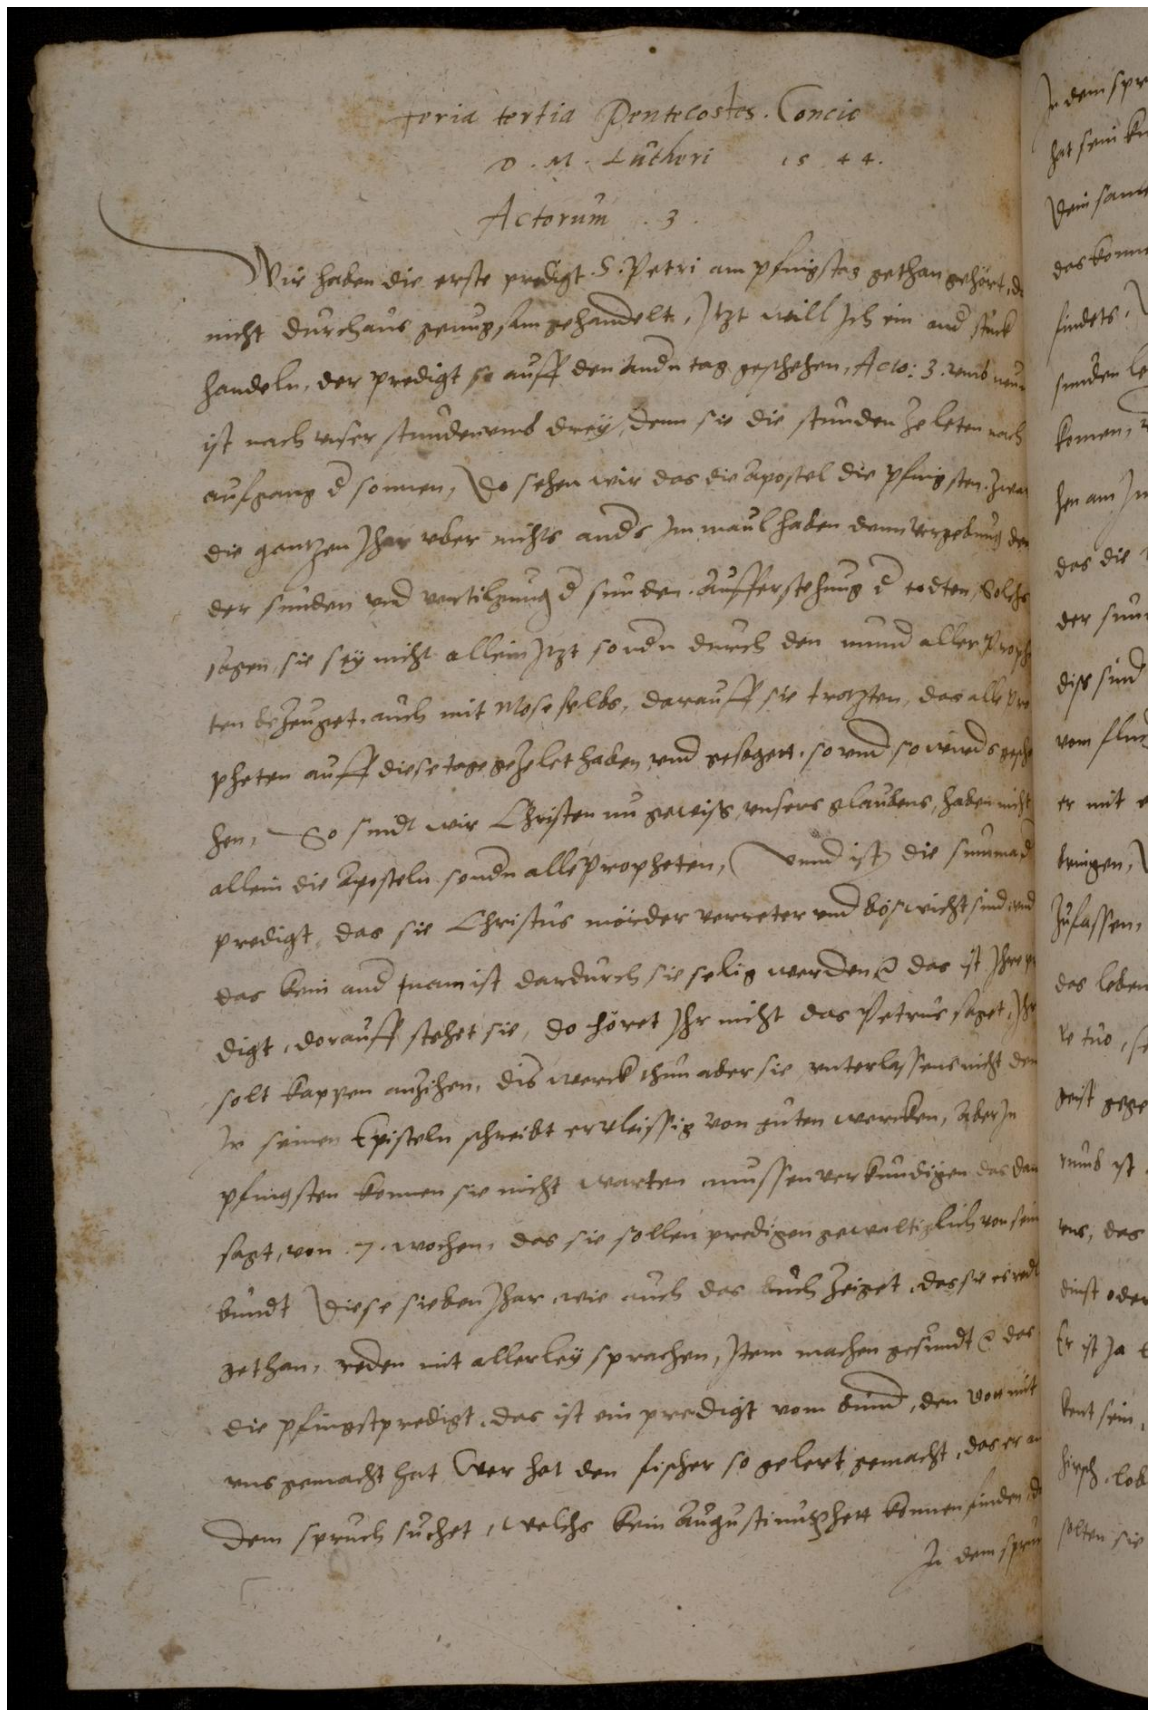 Feria tertia Pentecostes. Concio
D. M. Lutheri 1544.
Actorum . 3 .
Wir haben die erste predigt .S. Petri am pfingstag gethan gehört, die
nicht durchaus genugsam gehandelt, Itzt will Ich ein and stuck
handeln, der predigt so auff den andn tag geschehen, Acto: 3. umb neun
ist nach unser stunden umb drey, denn sie die stunden zeleten nach
aufgang d sonnen, Do sehen wir das die Apostel die pfingsten. Zwar
die gantzen Ihar uber nichts ands Im maul haben denn vergebung der
der sunden und vertilgung d sunden. Aufferstehung d todten, Solchs
sagen sie sey nicht allein Itzt sondn durch den mund aller Prophe
ten bezeuget. auch mit Mose selbs, darauff sie tratzten, das alle Pro
pheten auff diese tage gezelet haben und gesaget. so und so wirds gesche
hen, So sindt wir Christen nu gewiss unsers glaubens, haben nicht
allein die Aposteln sondn alle Propheten, (Unnd ist) die summa d
predigt, das sie Christus mörder verreter und böswicht sind und
das kein and nam ist dardurch sie selig werden das ist Ihre pre
digt, dorauff stehet sie, do höret Ihr nicht das Petrus saget, Ihr
solt kappen anzihen, dis werck thun aber sie unterlassens nicht den
In seinen Episteln schreibt er vleissig von guten wercken, Aber In
pfingsten konnen sie nicht warten mussen verkundigen das Dan
sagt, von .7. wochen, das sie sollen predigen gewaltiglich von sein
bundt Diese sieben Ihar, wie auch das buch zeiget, das sie es redl
gethan, reden mit allerley sprachen, Item machen gesundt das
die pfingstpredigt, das ist ein predigt vom bund, den Gott mit
uns gemacht hat, Wer hat den fischer so gelert gemacht, das er an
dem spruch suchet, welchs kein Augustinus hett konnen finden, d
In dem spruc
In dem spr
hat sein
Dein same
das konn
findets.
sunden le
komen,
hen am In
das die
der sun
diss sind
vom fluc
er mit e
bringen,
Zulassen,
das leben
re tuo, se
geist gege
rumb ist
uns, das
dinst oder
Er ist Ja
kent sein,
hirsch. lob
solten sie